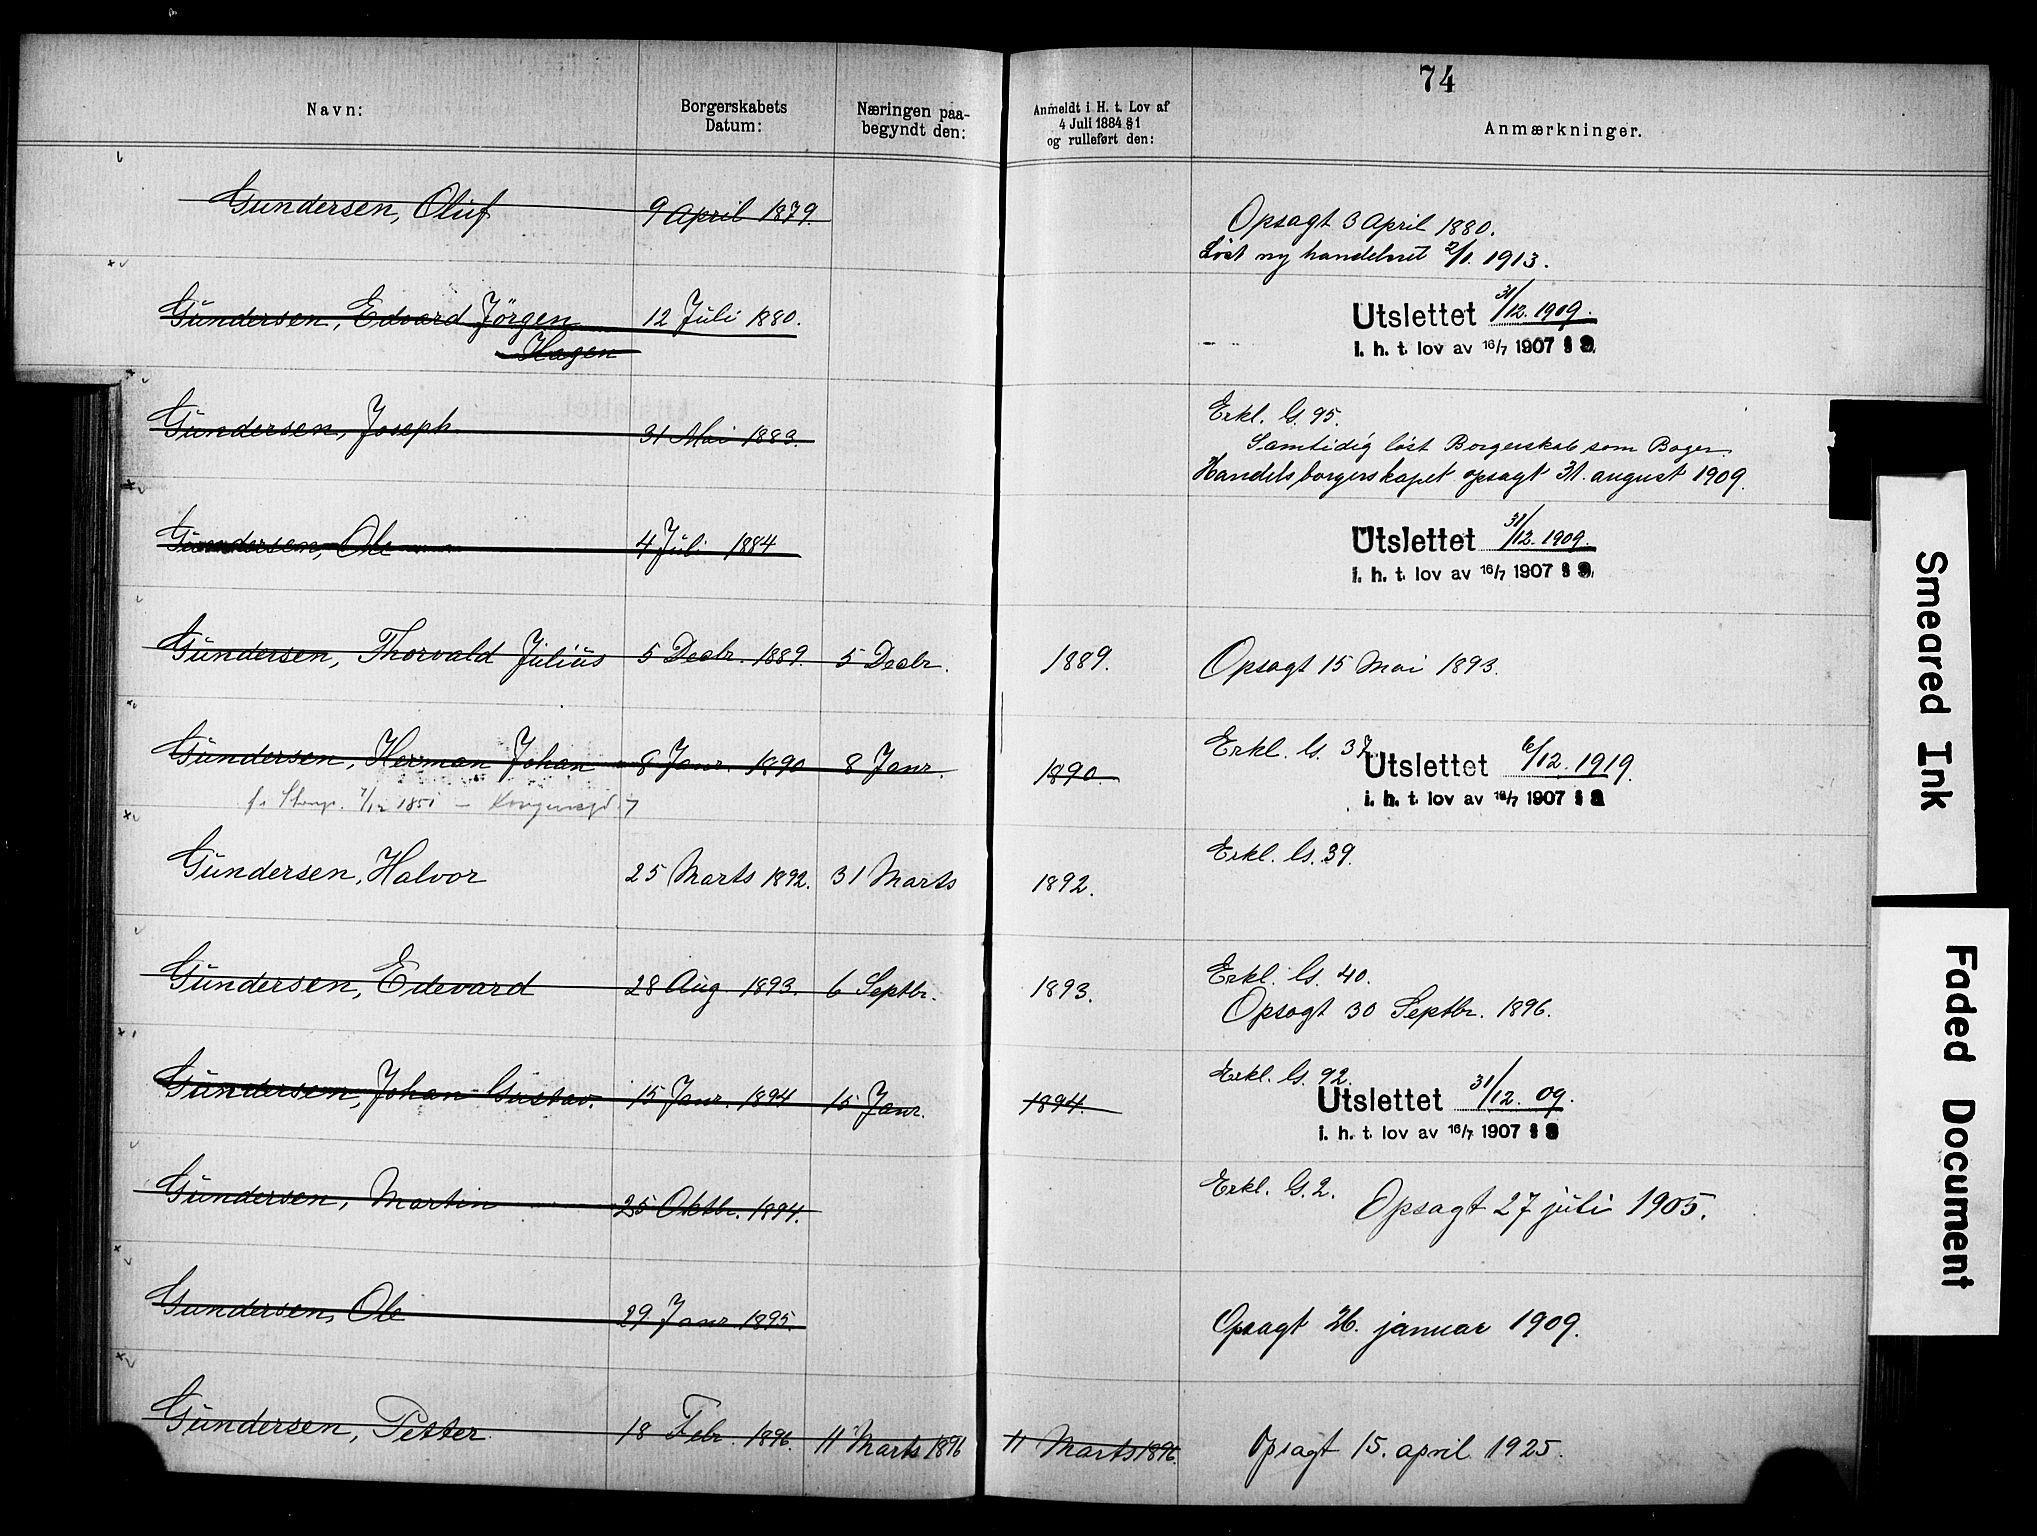 74
Navn:
Borgerskabets
Datum:
Næringen paa-
begyndt den:
Anmeldt i H. t. Lov af
4 Juli 1884 § 1
og rulleført den:
Anmærkninger.
Gundersen, Oluf 9 April 1879. Opsagt 3 April 1880.
Løst ny handelsret 2/1. 1913.
Gundersen, Edvard Jörgen 12 Juli 1880. Utslettet 31/12. 1909.
Hagen i. h. t. lov av 16/7 1907 §
Gundersen, Joseph 31 Mai 1883. Erkl. G. 95.
Samtidig løst Borgerskab som Bager.
Handelsborgerskapet opsagt 31. august 1909.
Gundersen, Ole 4 Juli 1884 Utslettet 31/12. 1909.
i. h. t. lov av 16/7 1907 §
Gundersen, Thorvald Julius 5 Decbr. 1889. 5 Decbr. 1889. Opsagt 15 Mai 1893.
Gundersen, Herman Johan 8 Janr. 1890 8 Janr. 1890. Erkl. G. 37. Utslettet 6/12. 1919.
f. 1851 — i. h. t. lov av 16/7 1907 §
Gundersen, Halvor 25 Marts 1892. 31 Marts 1892. Erkl. G. 39.
Gundersen, Edevard 28 Aug. 1893. 6 Septbr. 1893. Erkl. G. 40.
Opsagt 30 Septbr. 1896.
Gundersen, Johan Gustav. 15 Janr. 1894 15 Janr. 1894. Erkl. G. 92. Utslettet 31/12. 09.
i. h. t. lov av 16/7 1907 §
Gundersen, Martin 25 Oktbr. 1894. Erkl. G. 2. Opsagt 27 juli 1905.
Gundersen, Ole 29 Janr. 1895. Opsagt 26. januar 1909.
Gundersen, Petter 18 Febr. 1896. 11 Marts 1896 11 Marts 1896. Opsagt 15. april 1925.
Smeared Ink
Faded Document